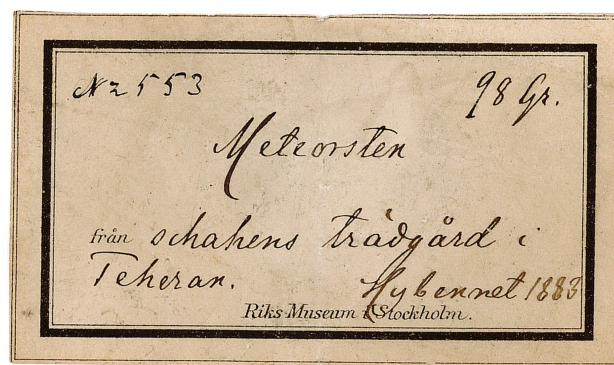 Nr 553 98 Gr.
Meteorsten
från schahens trädgård i
Teheran. Hybennet 1883
Riks-Museum i Stockholm.